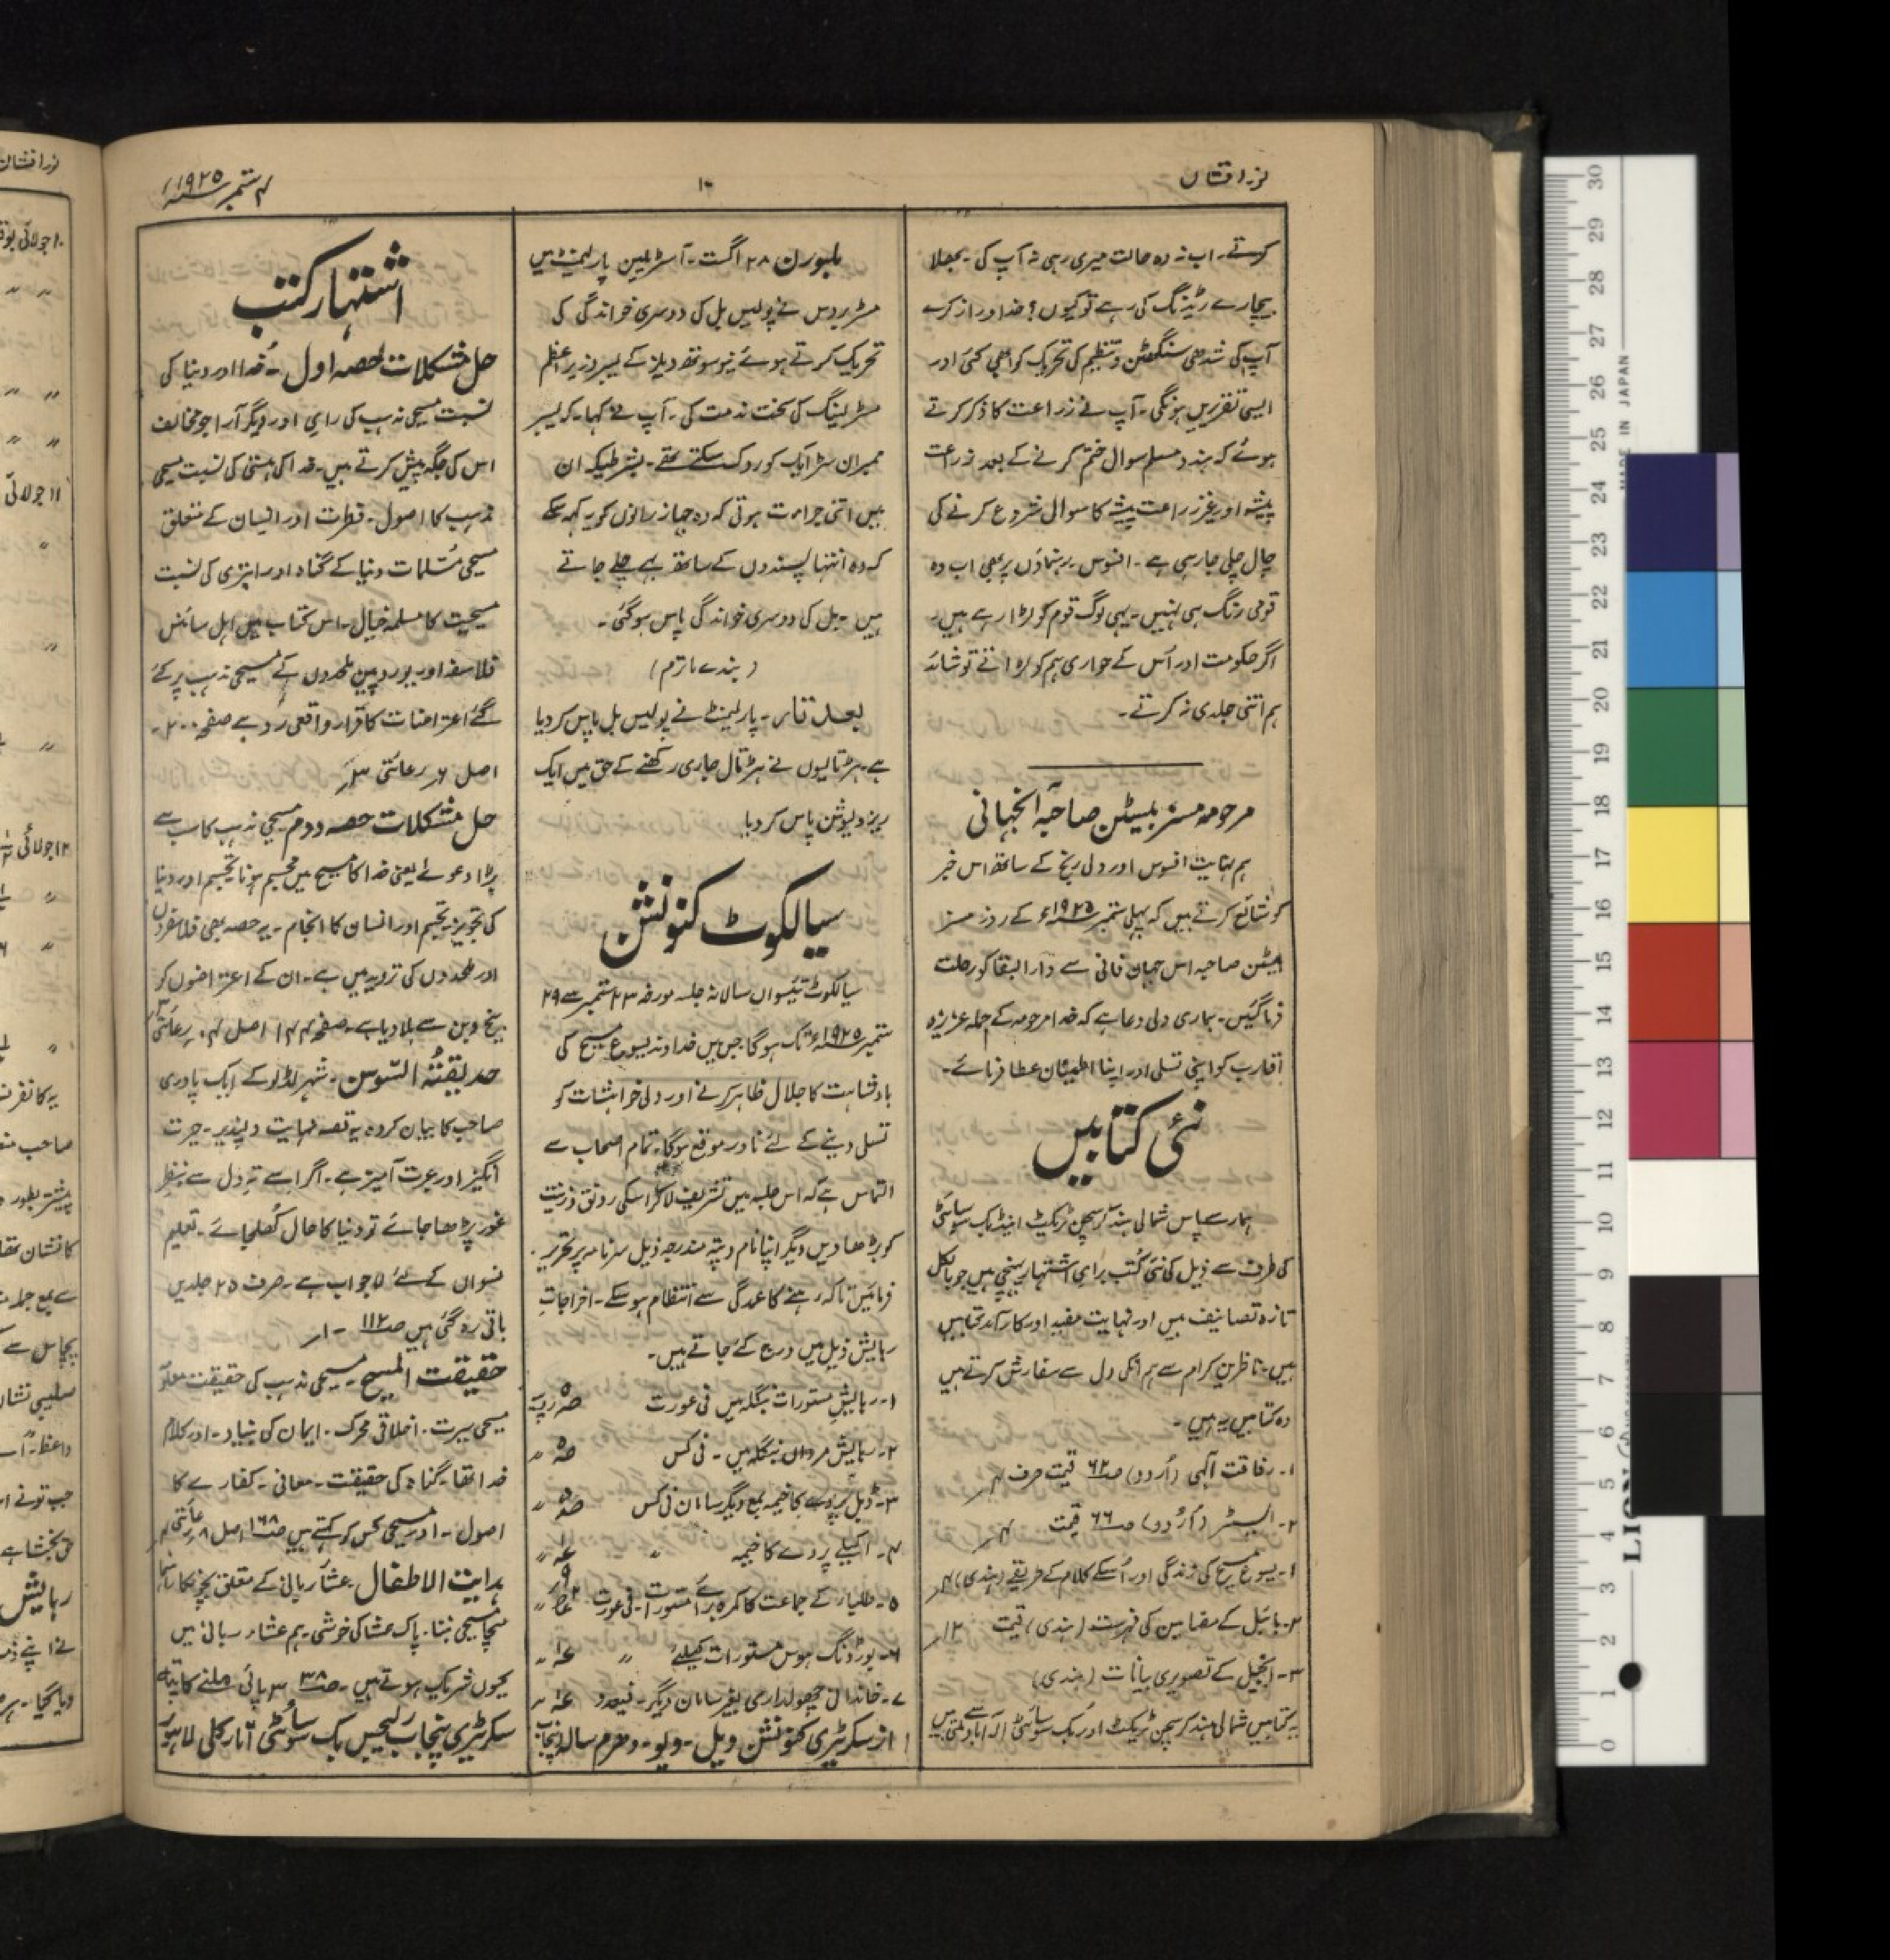 نور افشاں
۱۰
۴ ستمبر ۱۹۲۵ء
کرتے۔ اب نہ وہ حالت میری رہی نہ آپ کی۔ بھلا
بیچارے رئیزنگ کی رہے تو کیوں؟ خدا دراز کرے
آپ کی شدھی سنگھٹن و تنظیم کی تحریک کو ابھی کئی اور
ایسی تقریریں ہونگی۔ آپ نے زراعت کا ذکر کرتے
ہوئے کہ ہندو مسلم سوال ختم کرنے کے بعد زراعت
پیشہ اور غیر زراعت پیشہ کا سوال شروع کرنے کی
چال چلی جا رہی ہے۔ افسوس۔ رہنماؤں پر بھی اب وہ
قومی رنگ ہی نہیں۔ یہی لوگ قوم کو لڑا رہے ہیں۔
اگر حکومت اور اُس کے حواری ہم کو لڑاتے تو شائد
ہم اتنی جلدی نہ کرتے۔
مرحومہ مسز بیٹن صاحبہ آنجہانی
ہم نہایت افسوس اور دلی رنج کے ساتھ اس خبر
کو شائع کرتے ہیں کہ پہلی ستمبر ۱۹۲۵ء کے روز مسز
بیٹن صاحبہ اس جہان فانی سے دار البقا کو رحلت
فرما گئیں۔ ہماری دلی دعا ہے کہ خدا مرحومہ کے جملہ عزیز و
اقارب کو اپنی تسلی اور اپنا اطمینان عطا فرمائے۔
نئی کتابیں
ہمارے پاس شمالی ہند کرسچن ٹریکٹ اینڈ بک سوسائٹی
کی طرف سے ذیل کی نئی کُتب برائے اشتہار پہنچی ہیں جو بالکل
تازہ تصانیف ہیں اور نہایت مفید اور کارآمد کتابیں
ہیں۔ ناظرین کرام سے ہم انکی دل سے سفارش کرتے ہیں
وہ کتابیں یہ ہیں۔
۱۔ رفاقت الٰہی (اُردو) صہ ۶۲ قیمت صرف ۴؍
۲۔ البسٹر (اُردو) صہ ۶۶ قیمت ۴؍
۱۔ یسوع مسیح کی زندگی اور اُسکے کلام کے طریقے (ہندی) ۴؍
۲۔ بائیبل کے مضامین کی فہرست (ہندی) قیمت ۱۲؍
۳۔ انجیل کے تصویری بیانات (ہندی)
یہ کتابیں شمالی ہند کرسچن ٹریکٹ اور بک سوسائٹی الہ آباد سے ملتی ہیں
ملبورن ۲۸ اگست۔ آسٹریلین پارلیمنٹ میں
مسٹر بروس نے پولیس بل کی دوسری خواندگی کی
تحریک کرتے ہوئے نیو سوتھ ویلز کے لیبر وزیر اعظم
مسٹر لینگ کی سخت مذمت کی۔ آپ نے کہا۔ کہ لیبر
ممبران سٹرایک کو روک سکتے تھے۔ بشرطیکہ ان
میں اتنی جرأت ہوتی کہ وہ جہاز رانوں کو یہ کہہ سکے
کہ وہ انتہا پسندوں کے ساتھ بہے چلے جاتے
ہیں۔ بل کی دوسری خواندگی پاس ہو گئی۔
(بندے ماترم)
بعد تار۔ پارلیمنٹ نے پولیس بل پاس کر دیا
ہے۔ ہڑتالیوں نے ہڑتال جاری رکھنے کے حق میں ایک
ریزولیوشن پاس کر دیا
سیالکوٹ کنونشن
سیالکوٹ تیئسواں سالانہ جلسہ مورخہ ۲۳ ستمبر سے ۲۹
ستمبر ۱۹۲۵ء تک ہوگا۔ جس میں خداوند یسوع مسیح کی
بادشاہت کا جلال ظاہر کرنے اور دلی خواہشات کو
تسلی دینے کے لئے نادر موقع ہوگا۔ تمام اصحاب سے
التماس ہے کہ اس جلسہ میں تشریف لا کر اسکی رونق و زینت
کو بڑھا دیں دیگر اپنا نام و پتہ مندرجہ ذیل سرنامہ پر تحریر
فرمائیں تاکہ رہنے کا عمدگی سے انتظام ہو سکے۔ اخراجاتِ
رہایش ذیل میں درج کئے جاتے ہیں۔
۱۔ رہایش مستورات بنگلہ میں فی عورت
۲۔ رہایش مردان بنگلہ میں۔ فی کس
۳۔ ڈبل پردے کا خیمہ بمع دیگر سامان فی کس
۴۔ اکیلے پردے کا خیمہ
۵۔ طلباء کے جماعت کا کمرہ برائے مستورات۔ فی عورت
۶۔ بورڈنگ ہوس مستورات کیلئے
۷۔ خاندانی چھولداری بغیر سامان دیگر۔
از سکرٹری کنونشن ویل۔ ویو۔ دھرم سالہ پنجاب
اشتہار کتب
حل مشکلات حصہ اول۔ خدا اور دنیا کی
نسبت مسیحی مذہب کی رائے اور دیگر آرا جو مخالف
اس کی جگہ پیش کرتے ہیں۔ خدا کی ہستی کی نسبت مسیحی
مذہب کا اصول۔ فطرت اور انسان کے متعلق
مسیحی مُسلمات دنیا کے گناہ اور ابتری کی نسبت
مسیحیت کا مسلمہ خیال۔ اس کتاب میں اہل سائنس
فلاسفہ اور یوروپین ملحدوں کے مسیحی مذہب پر کئے
گئے اعتراضات کا قرار واقعی رد ہے صفحہ ۲۰۰۔
اصل ۶؍ رعائتی ۳؍
حل مشکلات حصہ دوم مسیحی مذہب کا سب سے
بڑا دعوےٰ یعنی خدا کا مسیح میں مجسم ہونا تجسیم اور دنیا
کی تجویز۔ تجسیم اور انسان کا انجام۔ یہ حصہ بھی فلاسفروں
اور ملحدوں کی تردید میں ہے۔ ان کے اعتراضوں کو
بیخ و بن سے ہلا دیا ہے۔ صفحہ ۱۴۴ اصل ۴؍ رعائتی
حدیقتہ السّوسن۔ شہر لڈلو کے ایک پادری
صاحب کا بیان کردہ یہ قصہ نہایت دلپذیر۔ حیرت
انگیز اور عبرت آمیز ہے۔ اگر اسے تہِ دل سے بنظرِ
غور پڑھا جائے تو دنیا کا حال کُھل جائے۔ تعلیم
نسواں کے لئے لاجواب ہے۔ صرف ۲۵ جلدیں
باقی رہ گئی ہیں صہ ۱۱۲ ۔ ۱؍
حقیقت المسیح۔ مسیحی مذہب کی حقیقت معلوم
مسیحی سیرت۔ اخلاقی محرک۔ ایمان کی بنیاد۔ اور کلام
خدا تھا۔ گناہ کی حقیقت۔ معافی۔ کفارے کا
اصول۔ اور مسیحی کس کو کہتے ہیں صہ ۱۶۸ اصل ۸؍ رعائتی ۴؍
ہدایت الاطفال۔ عشائے ربانی کے متعلق بچوں کا رہنما
سچا مسیحی بننا۔ پاک عشا کی خوشی۔ ہم عشاء ربانی میں
کیوں شریک ہوتے ہیں۔ صہ ۳۸ ۳ پائی ملنے کا پتہ
سکرٹری پنجاب رلیجس بک سوسائٹی انارکلی لاہور
نور افشاں
۱۰ جولائی
۱۱ جولائی
۱۲ جولائی
یہ کانفرنس
کا نشان تھا
پچاس سے
صلیبی نشان
جب تو نے
رہایش
MADE IN JAPAN
LION
30
29
28
27
26
25
24
23
22
21
20
19
18
17
16
15
14
13
12
11
10
9
8
7
6
5
4
3
2
1
0